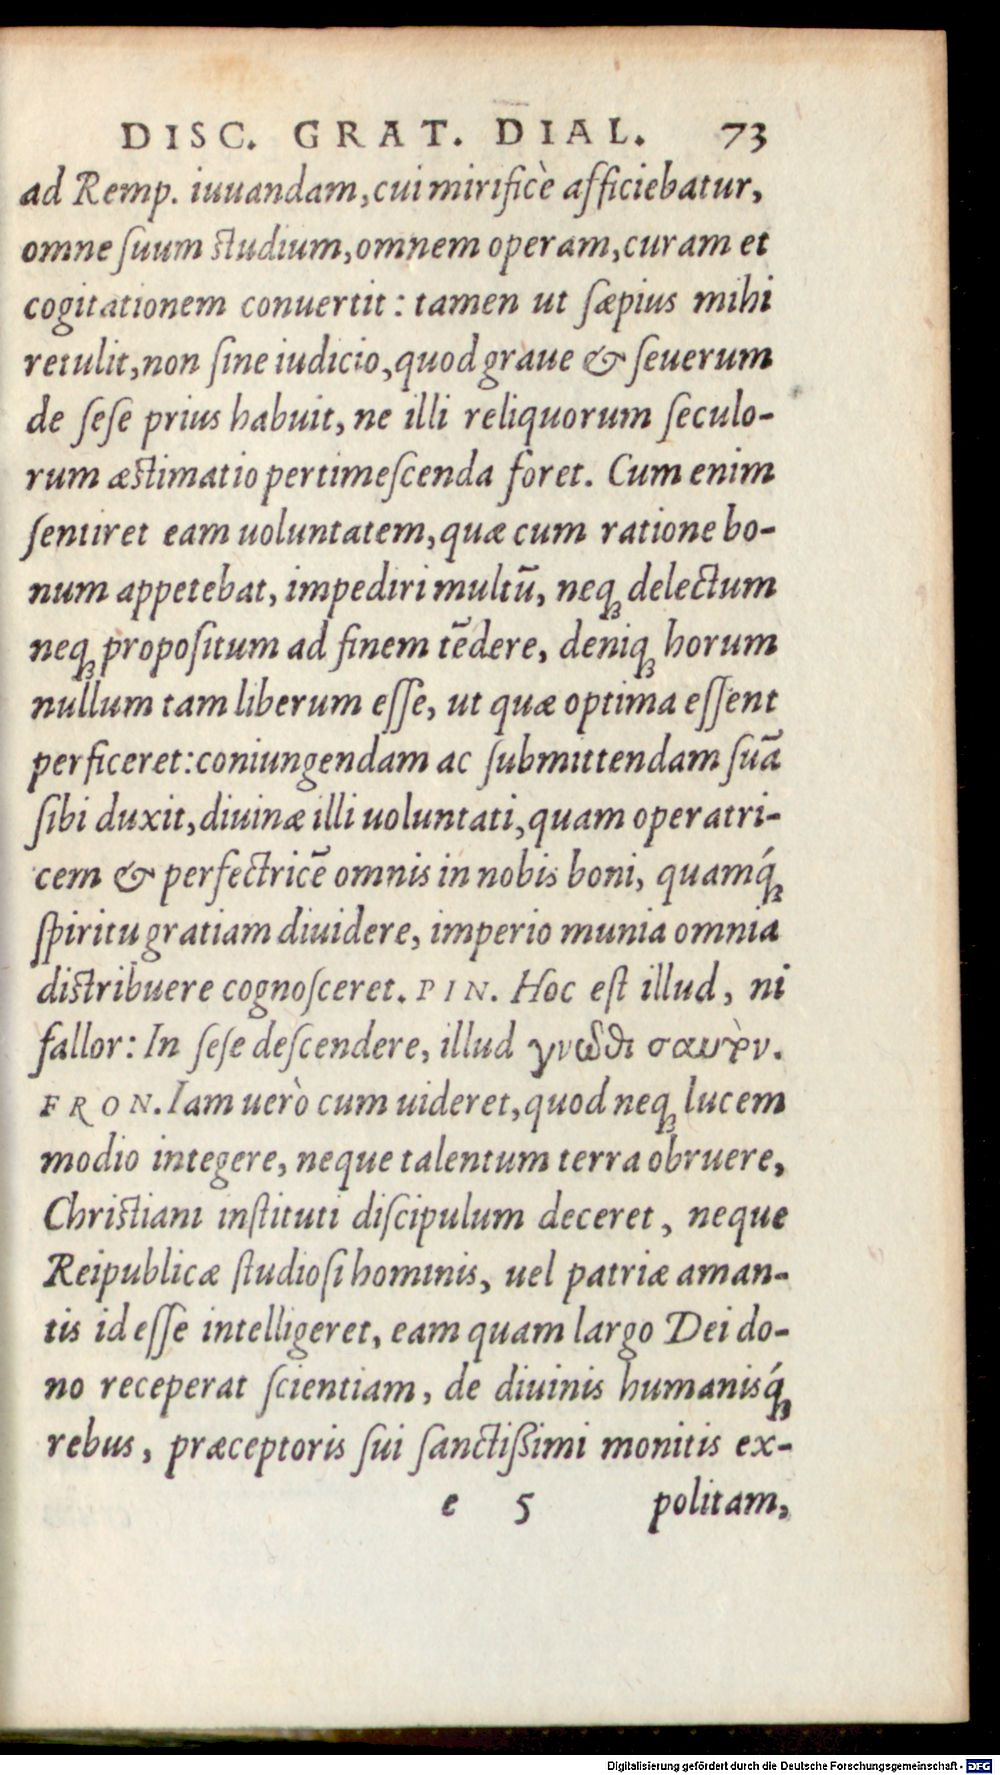 DISC. GRAT. DIAL. 73
ad Remp. iuuandam, cui mirificè afficiebatur,
omne ſuum ſtudium, omnem operam, curam et
cogitationem conuertit: tamen ut ſæpius mihi
retulit, non ſine iudicio, quod graue & ſeuerum
de ſeſe prius habuit, ne illi reliquorum ſeculo-
rum æſtimatio pertimeſcenda foret. Cum enim
ſentiret eam uoluntatem, quæ cum ratione bo-
num appetebat, impediri multū, neqꝫ delectum
neqꝫ propoſitum ad finem tēdere, deniqꝫ horum
nullum tam liberum eſſe, ut quæ optima eſſent
perficeret: coniungendam ac ſubmittendam ſuā
ſibi duxit, diuinæ illi uoluntati, quam operatri-
cem & perfectricē omnis in nobis boni, quamq́ꝫ
ſpiritu gratiam diuidere, imperio munia omnia
diſtribuere cognoſceret. PIN. Hoc eſt illud, ni
fallor: In ſeſe deſcendere, illud γνῶθι σαυτὸν.
FRON. Iam uerò cum uideret, quod neqꝫ lucem
modio integere, neque talentum terra obruere,
Chriſtiani inſtituti diſcipulum deceret, neque
Reipublicæ ſtudioſi hominis, uel patriæ aman-
tis id eſſe intelligeret, eam quam largo Dei do-
no receperat ſcientiam, de diuinis humanisq́ꝫ
rebus, præceptoris ſui ſanctißimi monitis ex-
e 5 politam,
Digitalisierung gefördert durch die Deutsche Forschungsgemeinschaft - DFG